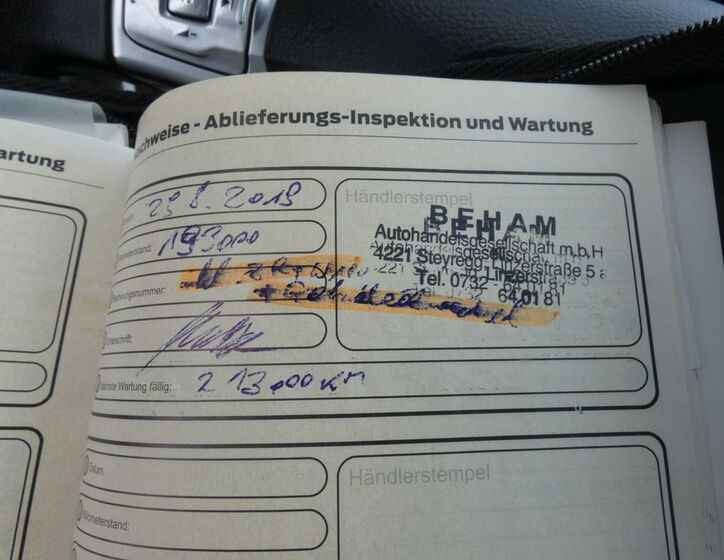 artung
chweise - Ablieferungs-Inspektion und Wartung
29.8.2019
Händlerstempel
BEHAM
Autohandelsgesellschaft m.b.H
4221 Steyregg, Linzerstraße 5
Tel. 0732 - 64 01 81
meterstand: 193000
Rechnungsnummer:
Unterschrift:
Nächste Wartung fällig: 213.000 KM
Datum:
Händlerstempel
Kilometerstand: